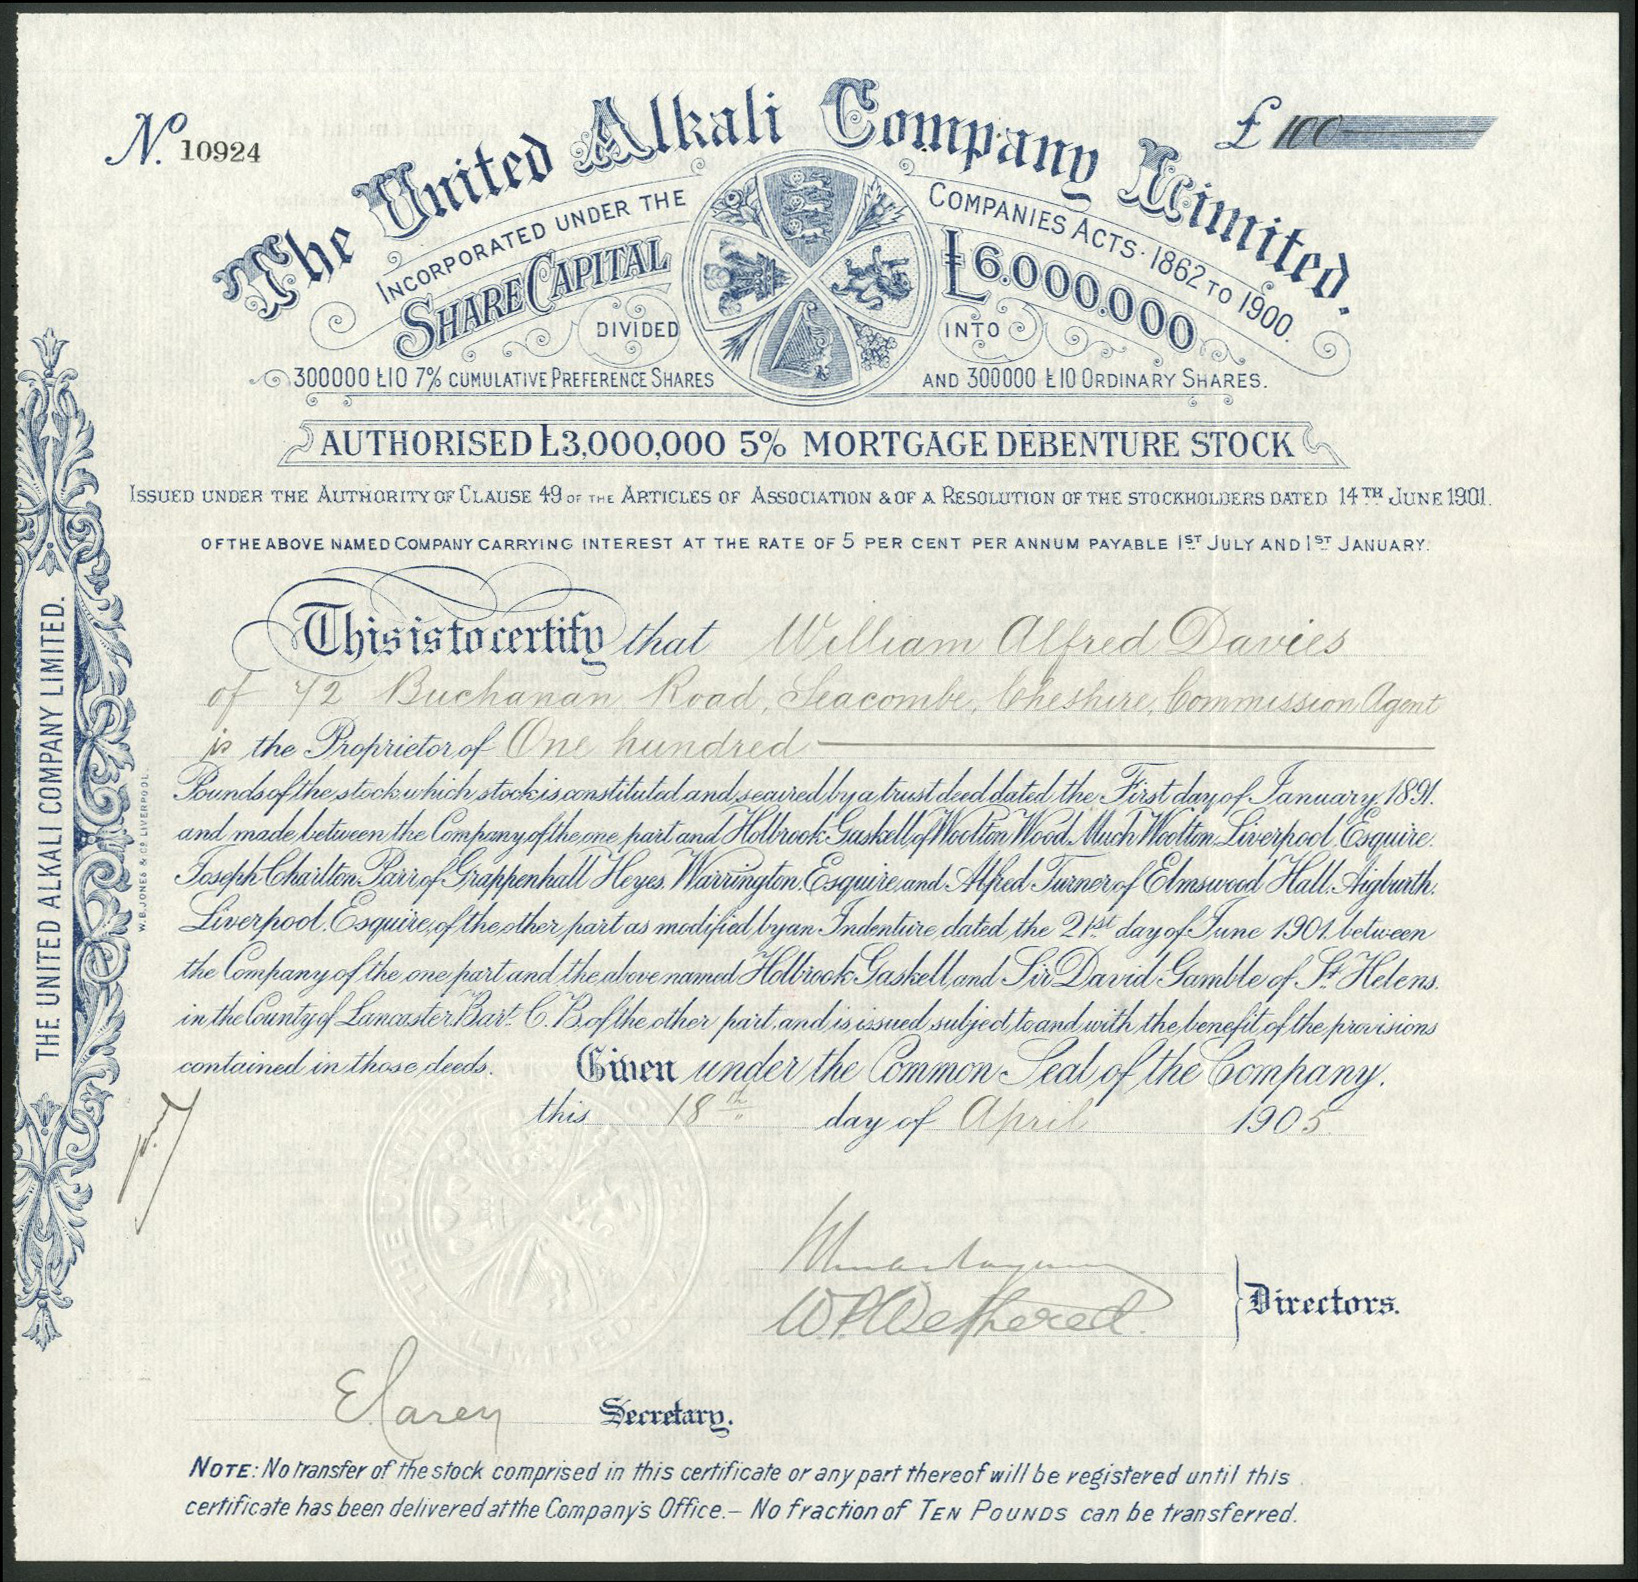 No. 10924
£ 100
The United Alkali Company Limited.
INCORPORATED UNDER THE COMPANIES ACTS · 1862 TO 1900.
SHARE CAPITAL £6.000.000
DIVIDED INTO
300000 £10 7% CUMULATIVE PREFERENCE SHARES AND 300000 £10 ORDINARY SHARES.
AUTHORISED £3,000,000 5% MORTGAGE DEBENTURE STOCK
ISSUED UNDER THE AUTHORITY OF CLAUSE 49 OF THE ARTICLES OF ASSOCIATION & OF A RESOLUTION OF THE STOCKHOLDERS DATED 14TH JUNE 1901.
OF THE ABOVE NAMED COMPANY CARRYING INTEREST AT THE RATE OF 5 PER CENT PER ANNUM PAYABLE 1ST JULY AND 1ST JANUARY.
This is to certify that William Alfred Davies
of 72 Buchanan Road, Seacombe, Cheshire, Commission Agent
is the Proprietor of One hundred
Pounds of the stock which stock is constituted and secured by a trust deed dated the First day of January 1891.
and made between the Company of the one part and Holbrook Gaskell of Woolton Wood, Much Woolton, Liverpool, Esquire.
Joseph Charlton Parr of Grappenhall Heyes, Warrington, Esquire and Alfred Turner of Elmswood Hall, Aigburth,
Liverpool, Esquire, of the other part as modified by an Indenture dated the 21st day of June 1901 between
the Company of the one part and the above named Holbrook Gaskell and Sir David Gamble of St. Helens.
in the County of Lancaster Bart. C.B. of the other part, and is issued subject to and with the benefit of the provisions
contained in those deeds. Given under the Common Seal of the Company.
this 18th day of April 1905
W.P. Wethered
Directors.
E. Carey Secretary.
NOTE: No transfer of the stock comprised in this certificate or any part thereof will be registered until this
certificate has been delivered at the Company's Office. — No fraction of TEN POUNDS can be transferred.
THE UNITED ALKALI COMPANY LIMITED.
W.B. JONES & CO. LIVERPOOL.
THE UN
LIMITED